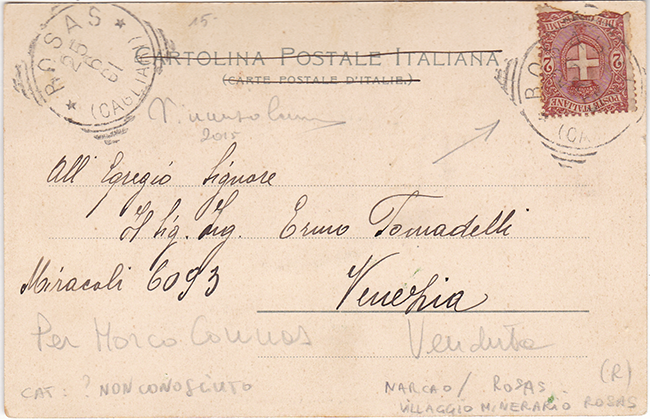 15
ROSAS
(CAGLIARI)
CARTOLINA POSTALE ITALIANA
(CARTE POSTALE D'ITALIE.)
2 POSTE ITALIANE 2
2015
All' Egregio Signore
Il Sig. Ing. Ermo Tomadelli
Miracoli 6093 Venezia
Per Marco Connas Venduta
CAT: ? NON CONOSCIUTO
NARCAO / ROSAS (R)
VILLAGGIO MINERARIO ROSAS